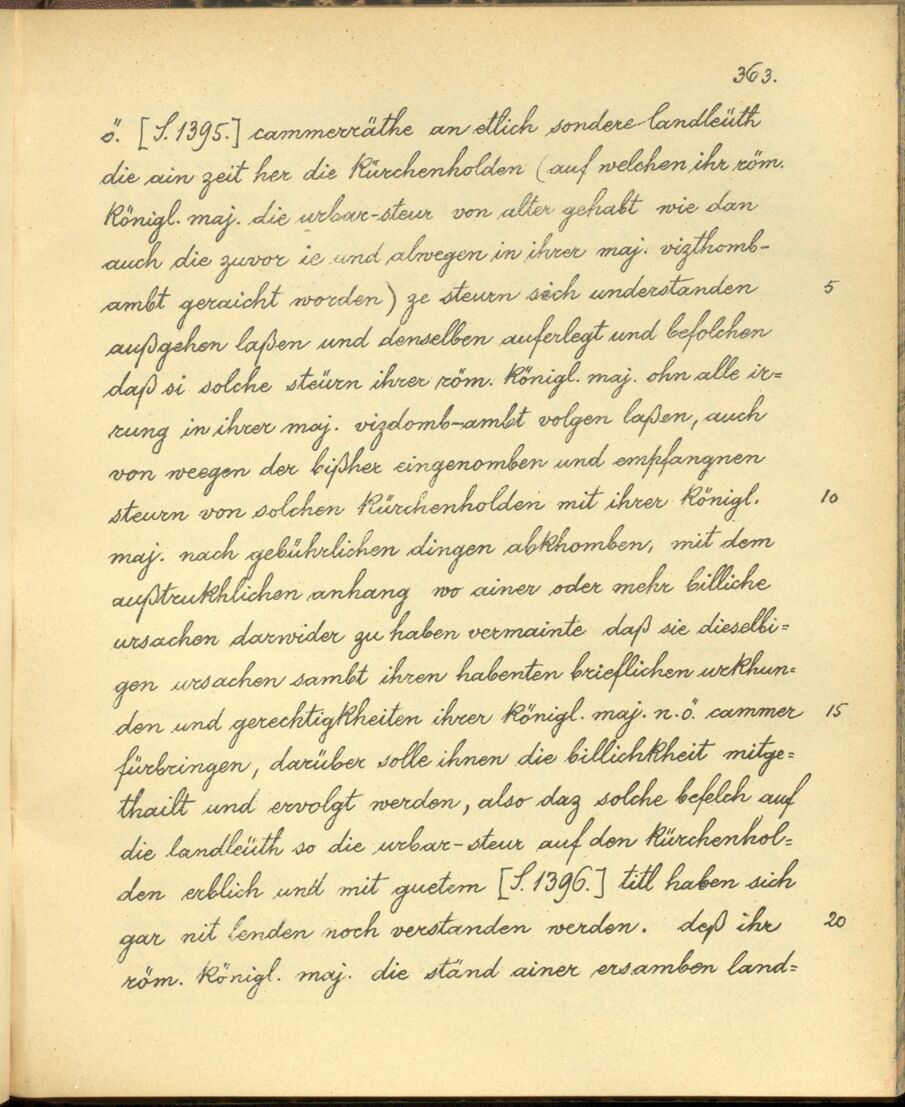 363.
ö. [S. 1395.] cammerräthe an etlich sondere landleüth
die ain zeit her die kürchenholden (auf welchen ihr röm.
königl. maj. die urbar-steur von alter gehabt wie dan
auch die zuvor ie und alwegen in ihrer maj. vizthomb-
ambt geraicht worden) ze steurn sich understanden 5
außgehen laßen und denselben auferlegt und befolchen
daß si solche steürn ihrer röm. königl. maj. ohn alle ir=
rung in ihrer maj. vizdomb-ambt volgen laßen, auch
von weegen der bißher eingenomben und empfangnen
steurn von solchen kürchenholden mit ihrer königl. 10
maj. nach gebührlichen dingen abkhomben, mit dem
außtrukhlichen anhang wo ainer oder mehr billiche
ursachen darwider zu haben vermainte daß sie dieselbi=
gen ursachen sambt ihren habenten brieflichen urkhun=
den und gerechtigkheiten ihrer königl. maj. n. ö. cammer 15
fürbringen, darüber solle ihnen die billichkheit mitge=
thailt und ervolgt werden, also daz solche befelch auf
die landleüth so die urbar-steur auf den kürchenhol=
den erblich und mit guetem [S. 1396.] titl haben sich
gar nit lenden noch verstanden werden. deß ihr 20
röm. königl. maj. die ständ ainer ersamben land=